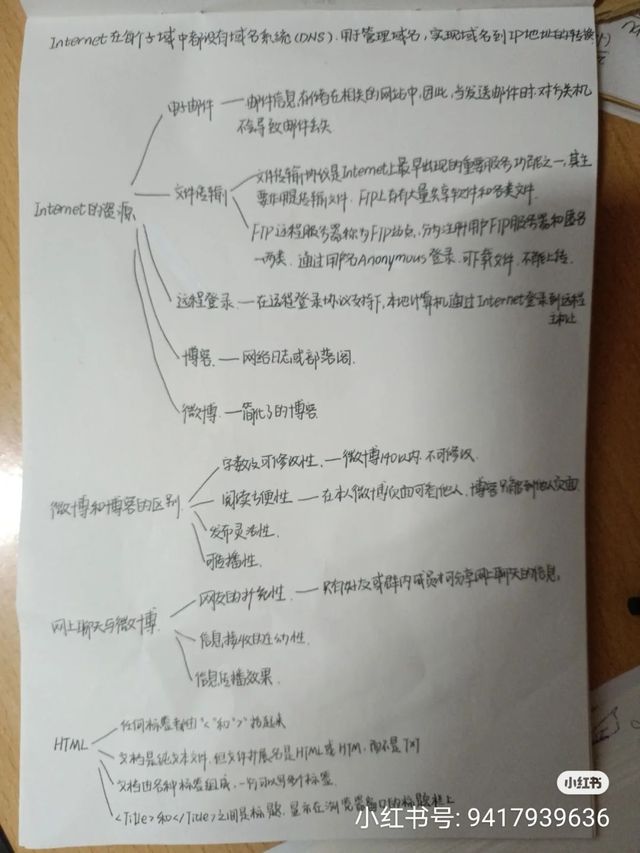 Internet在每个子域中都设有域名系统(DNS).用于管理域名,实现域名到IP地址的转换
Internet的资源
电子邮件 — 邮件信息存储在相关的网站中,因此,当发送邮件时,对方关机
不会导致邮件丢失
文件传输
文件传输协议是Internet上最早出现的重要服务功能之一,其主
要作用是传输文件. FTP上存有大量共享软件和各类文件.
FTP远程服务器称为FTP站点,分为注册用户FTP服务器和匿名
两类. 通过用户名Anonymous登录.可下载文件.不能上传.
远程登录.—在远程登录协议支持下,本地计算机通过Internet登录到远程
主机上
博客 — 网络日志或部落阁.
微博.—简化了的博客
微博和博客的区别
字数及可修改性.—微博140以内.不可修改.
阅读方便性 — 在本人微博页面可看他人,博客只能到他人页面
发布灵活性.
可传播性.
网上聊天与微博.
网友的扩充性.—只有好友或群内成员才可分享网上聊天的信息.
信息接收的主动性.
信息传播效果.
HTML
任何标签都由"<"和">"括起来
文档是纯文本文件.但文件扩展名是HTML或HTM,而不是TXT
文档由各种标签组成,一行可以写多个标签.
<Title>和</Title>之间是标题.显示在浏览器窗口的标题栏上
小红书
小红书号: 9417939636